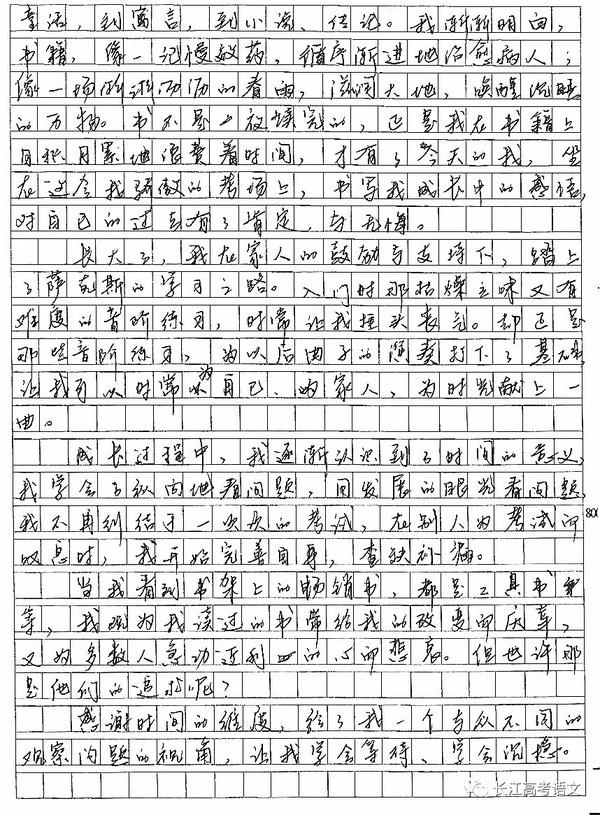 童话，到寓言，到小说、传记。我渐渐明白，
书籍，像一记慢效药，循序渐进地治愈病人；
像一场淅淅沥沥的春雨，滋润大地，唤醒沉睡
的万物。书不是一夜读完的，正是我在书籍上
日积月累地浪费着时间，才有了今天的我，坐
在这令我骄傲的考场上，书写我成长中的感悟，
对自己的过去有了肯定，与无悔。
长大了，我在家人的鼓励与支持下，踏上
了萨克斯的学习之路。入门时那枯燥乏味又有
难度的音阶练习，时常让我垂头丧气。却正是
那些音阶练习，为以后曲子的演奏打下了基础，
让我可以时常为自己、为家人，为时光献上一
曲。
成长过程中，我逐渐认识到了时间的意义，
我学会了纵向地看问题，用发展的眼光看问题，
我不再纠结于一次次的考试，在别人为考试而
叹息时，我开始完善自身，查缺补漏。
800
当我看到书架上的畅销书，都是工具书
等，我为我读过的书带给我的改变而庆幸，
又为多数人急功近利的心而悲哀。但也许那
是他们的追求呢？
感谢时间的维度，给了我一个与众不同的
观察问题的视角，让我学会等待、学会沉稳。
长江高考语文